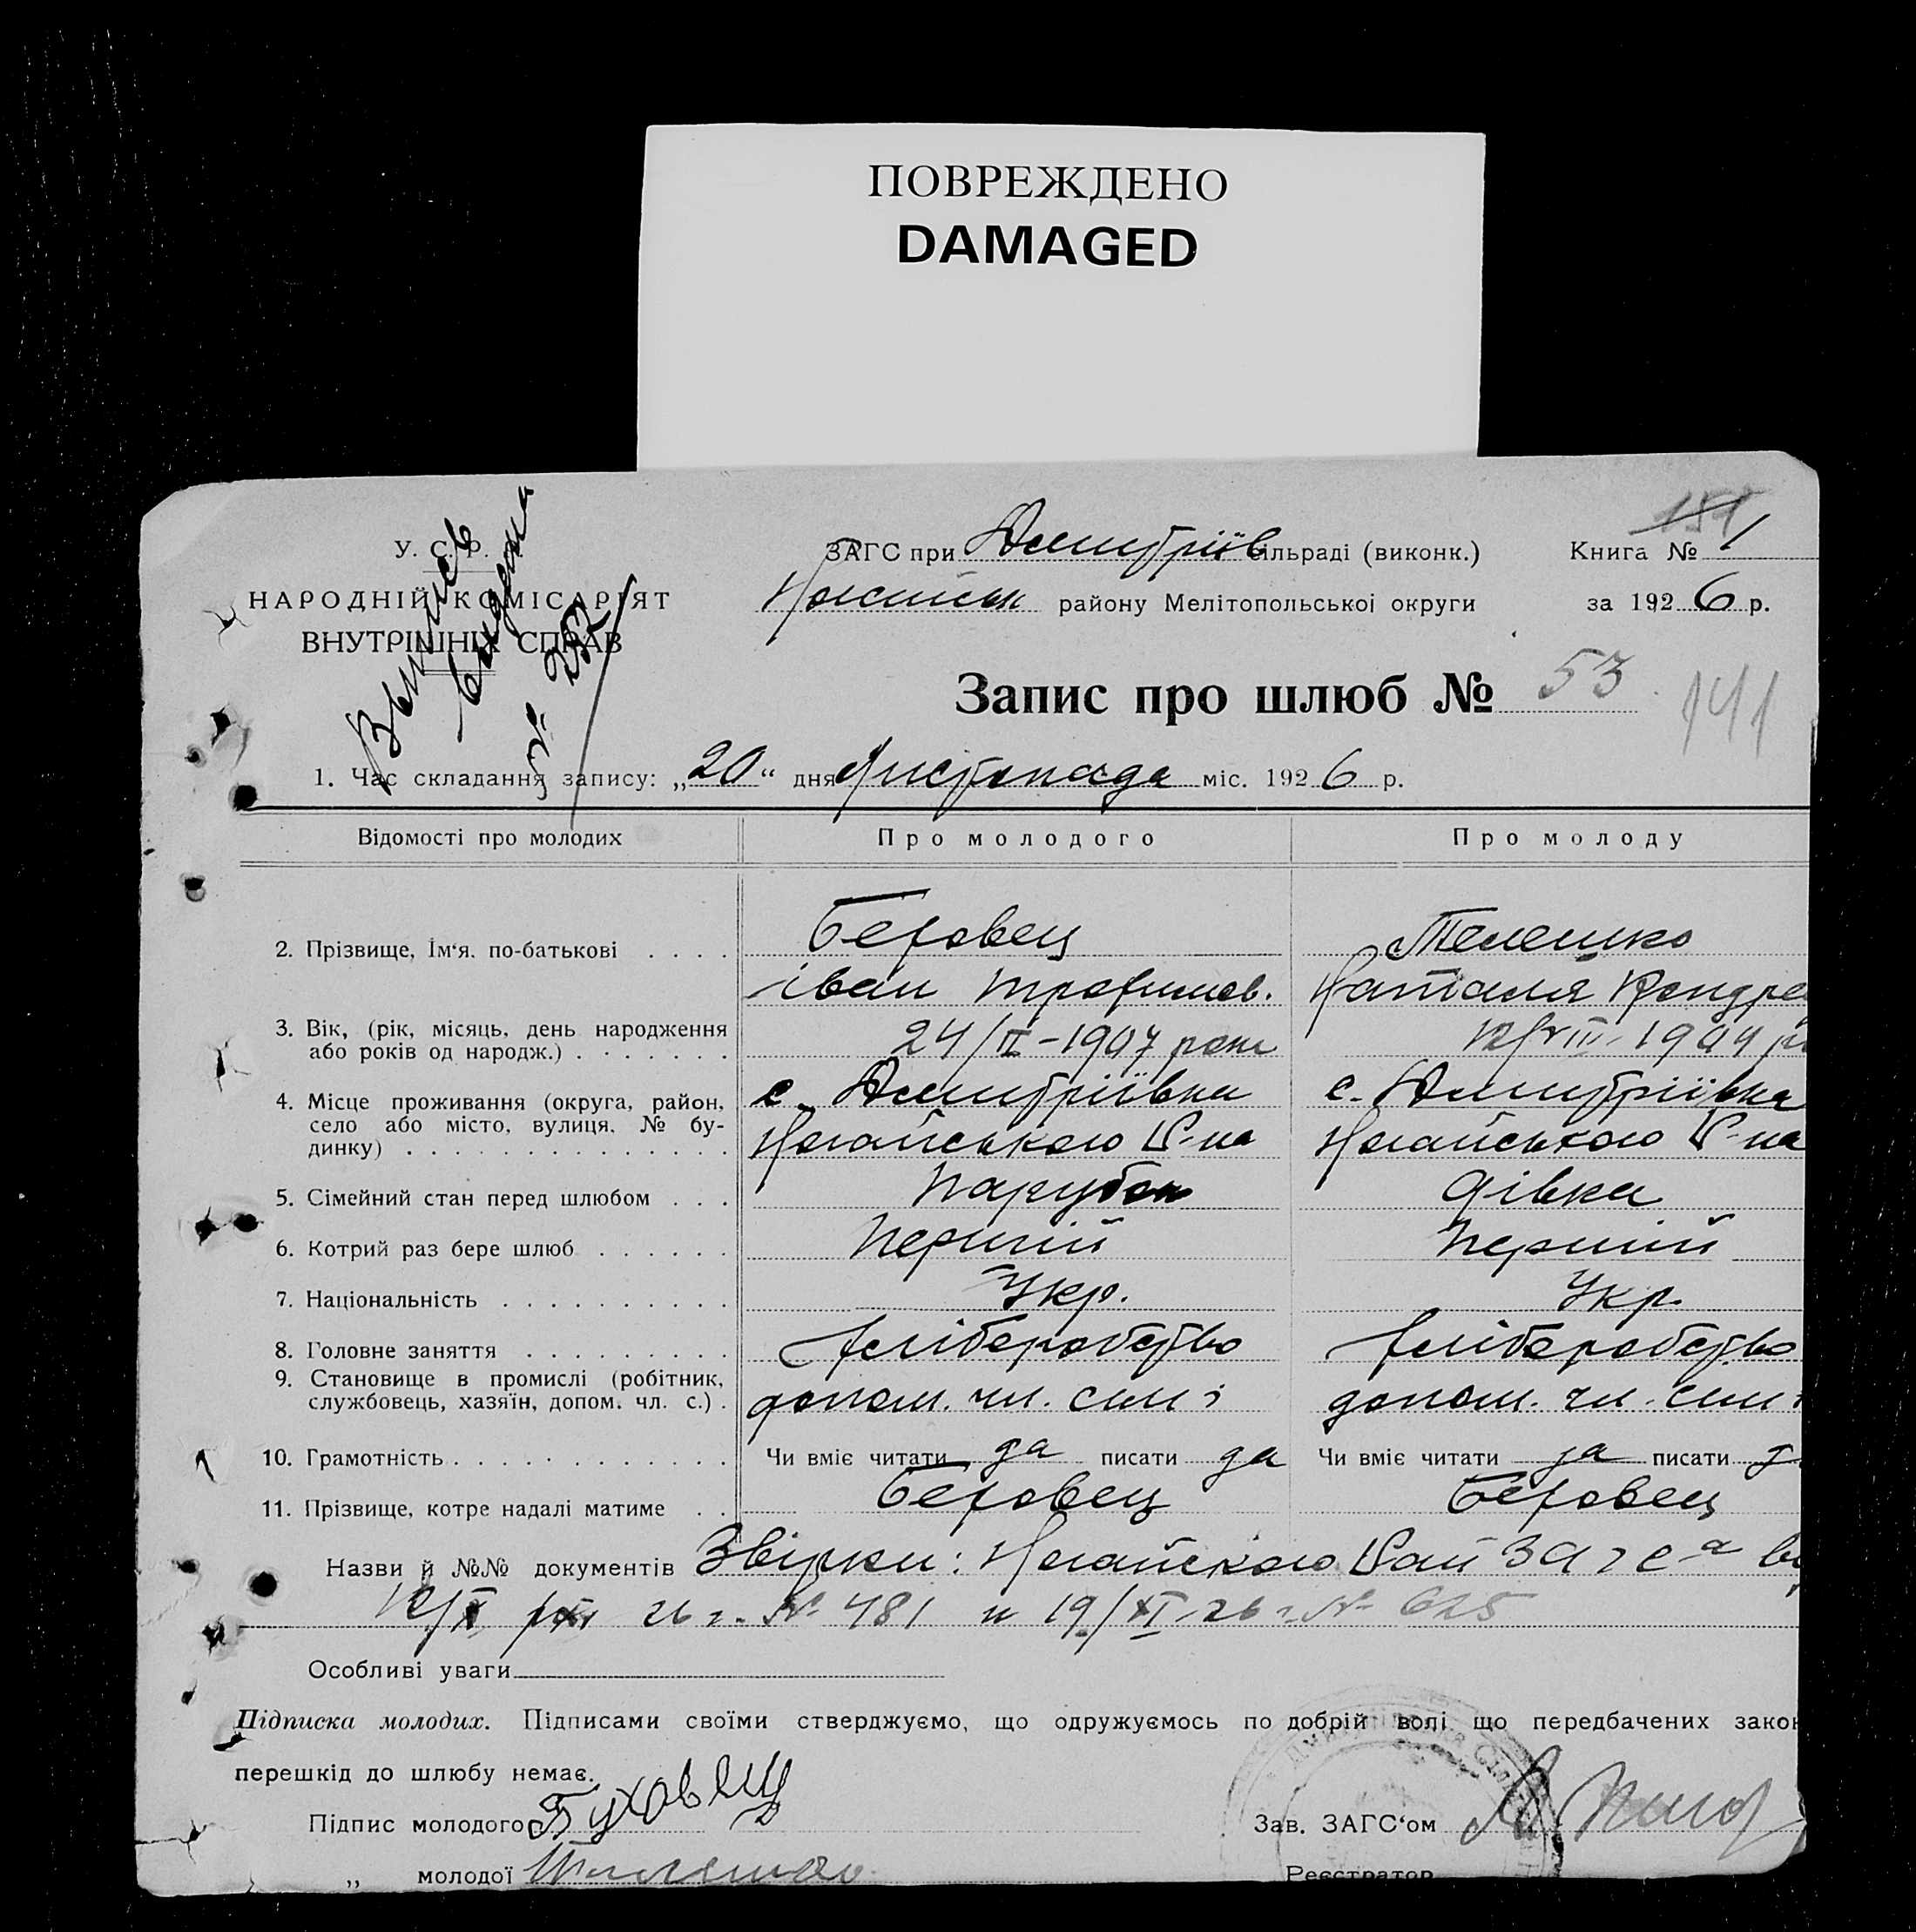 ПОВРЕЖДЕНО
DAMAGED
У. С. Р.
НАРОДНІЙ КОМІСАРІЯТ
ВНУТРІШНІХ СПРАВ
Выпись
видана
№ 252
ЗАГС при Дмитріїв сільраді (виконк.)
Книга № 1
районy Мелітопольської округи
за 1926 р.
Запис про шлюб № 53
141
1. Час складання запису: „20“ дня листопада міс. 1926 р.
Відомості про молодих Про молодого Про молоду
2. Прізвище, Ім‘я. по-батькові . . . . Беховец Телешко
Іван Трофимов. Наталя Кондра
3. Вік, (рік, місяць, день народження 24/II-1907 роки 1904
або років од народж.) . . . . . . .
4. Місце проживання (округа, район, с. Дмитріївка с. Дмитріївка
село або місто, вулиця, № бу- Ногайського Р-на Ногайського Р-на
динку) . . . . . . . . . . . . . .
5. Сімейний стан перед шлюбом . . . Парубок Дівка
6. Котрий раз бере шлюб . . . . . . Перший Перший
7. Національність . . . . . . . . . . Укр. Укр.
8. Головне заняття . . . . . . . . . Хліборобство Хліборобство
9. Становище в промислі (робітник,
службовець, хазяїн, допом. чл. с.) . допом. чл. сим'ї допом. чл. сим'ї
10. Грамотність . . . . . . . . . . . . Чи вміє читати да писати да Чи вміє читати да писати д
11. Прізвище, котре надалі матиме . . Беховец Беховец
Назви й №№ документів Ногайского Рай ЗАГС-а
26 г. № 481 и 19/XI-26 г. № 625
Особливі уваги
Підписка молодих. Підписами своїми стверджуємо, що одружуємось по добрій волі що передбачених закон
перешкід до шлюбу немає.
Підпис молодого Буховец
Зав. ЗАГС‘ом
„ молодої Телешко
Реєстратор